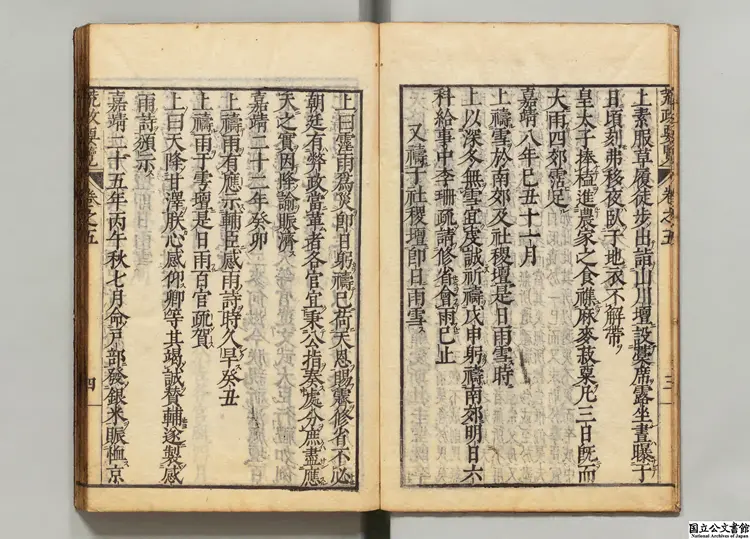 上素服草履徒步出詣山川壇設藁席露坐晝曝于
日頃刻弗移夜臥于地衣不解帶
皇太子捧榼進農家之食雜麻麥菽粟凡三日既而
大雨四郊霑足
嘉靖八年己丑十一月
上禱雪於南郊及社稷壇是日雨雪時
上以深冬無雪宜虔誠祈禱戊申躬禱南郊明日六
科給事中李珊疏請修省會雨已止
又禱于社稷壇即日雨雪
荒政要覽
卷之五
三
上曰霪雨為災即日躬禱已荷天恩賜霽修省不必
朝廷有弊政當革者各官宜秉公指奏處分庶盡應
天之實因降諭賑濟
嘉靖二十二年癸卯
上禱雨有應示輔臣感雨詩時久旱癸丑
上禱雨于雩壇是日雨百官疏賀
上曰天降甘澤朕心感仰卿等其竭誠贊輔遂製感
雨詩頒示
嘉靖二十五年丙午秋七月命戶部發銀米賑恤京
荒政要覽
卷之五
四
国立公文書館
National Archives of Japan